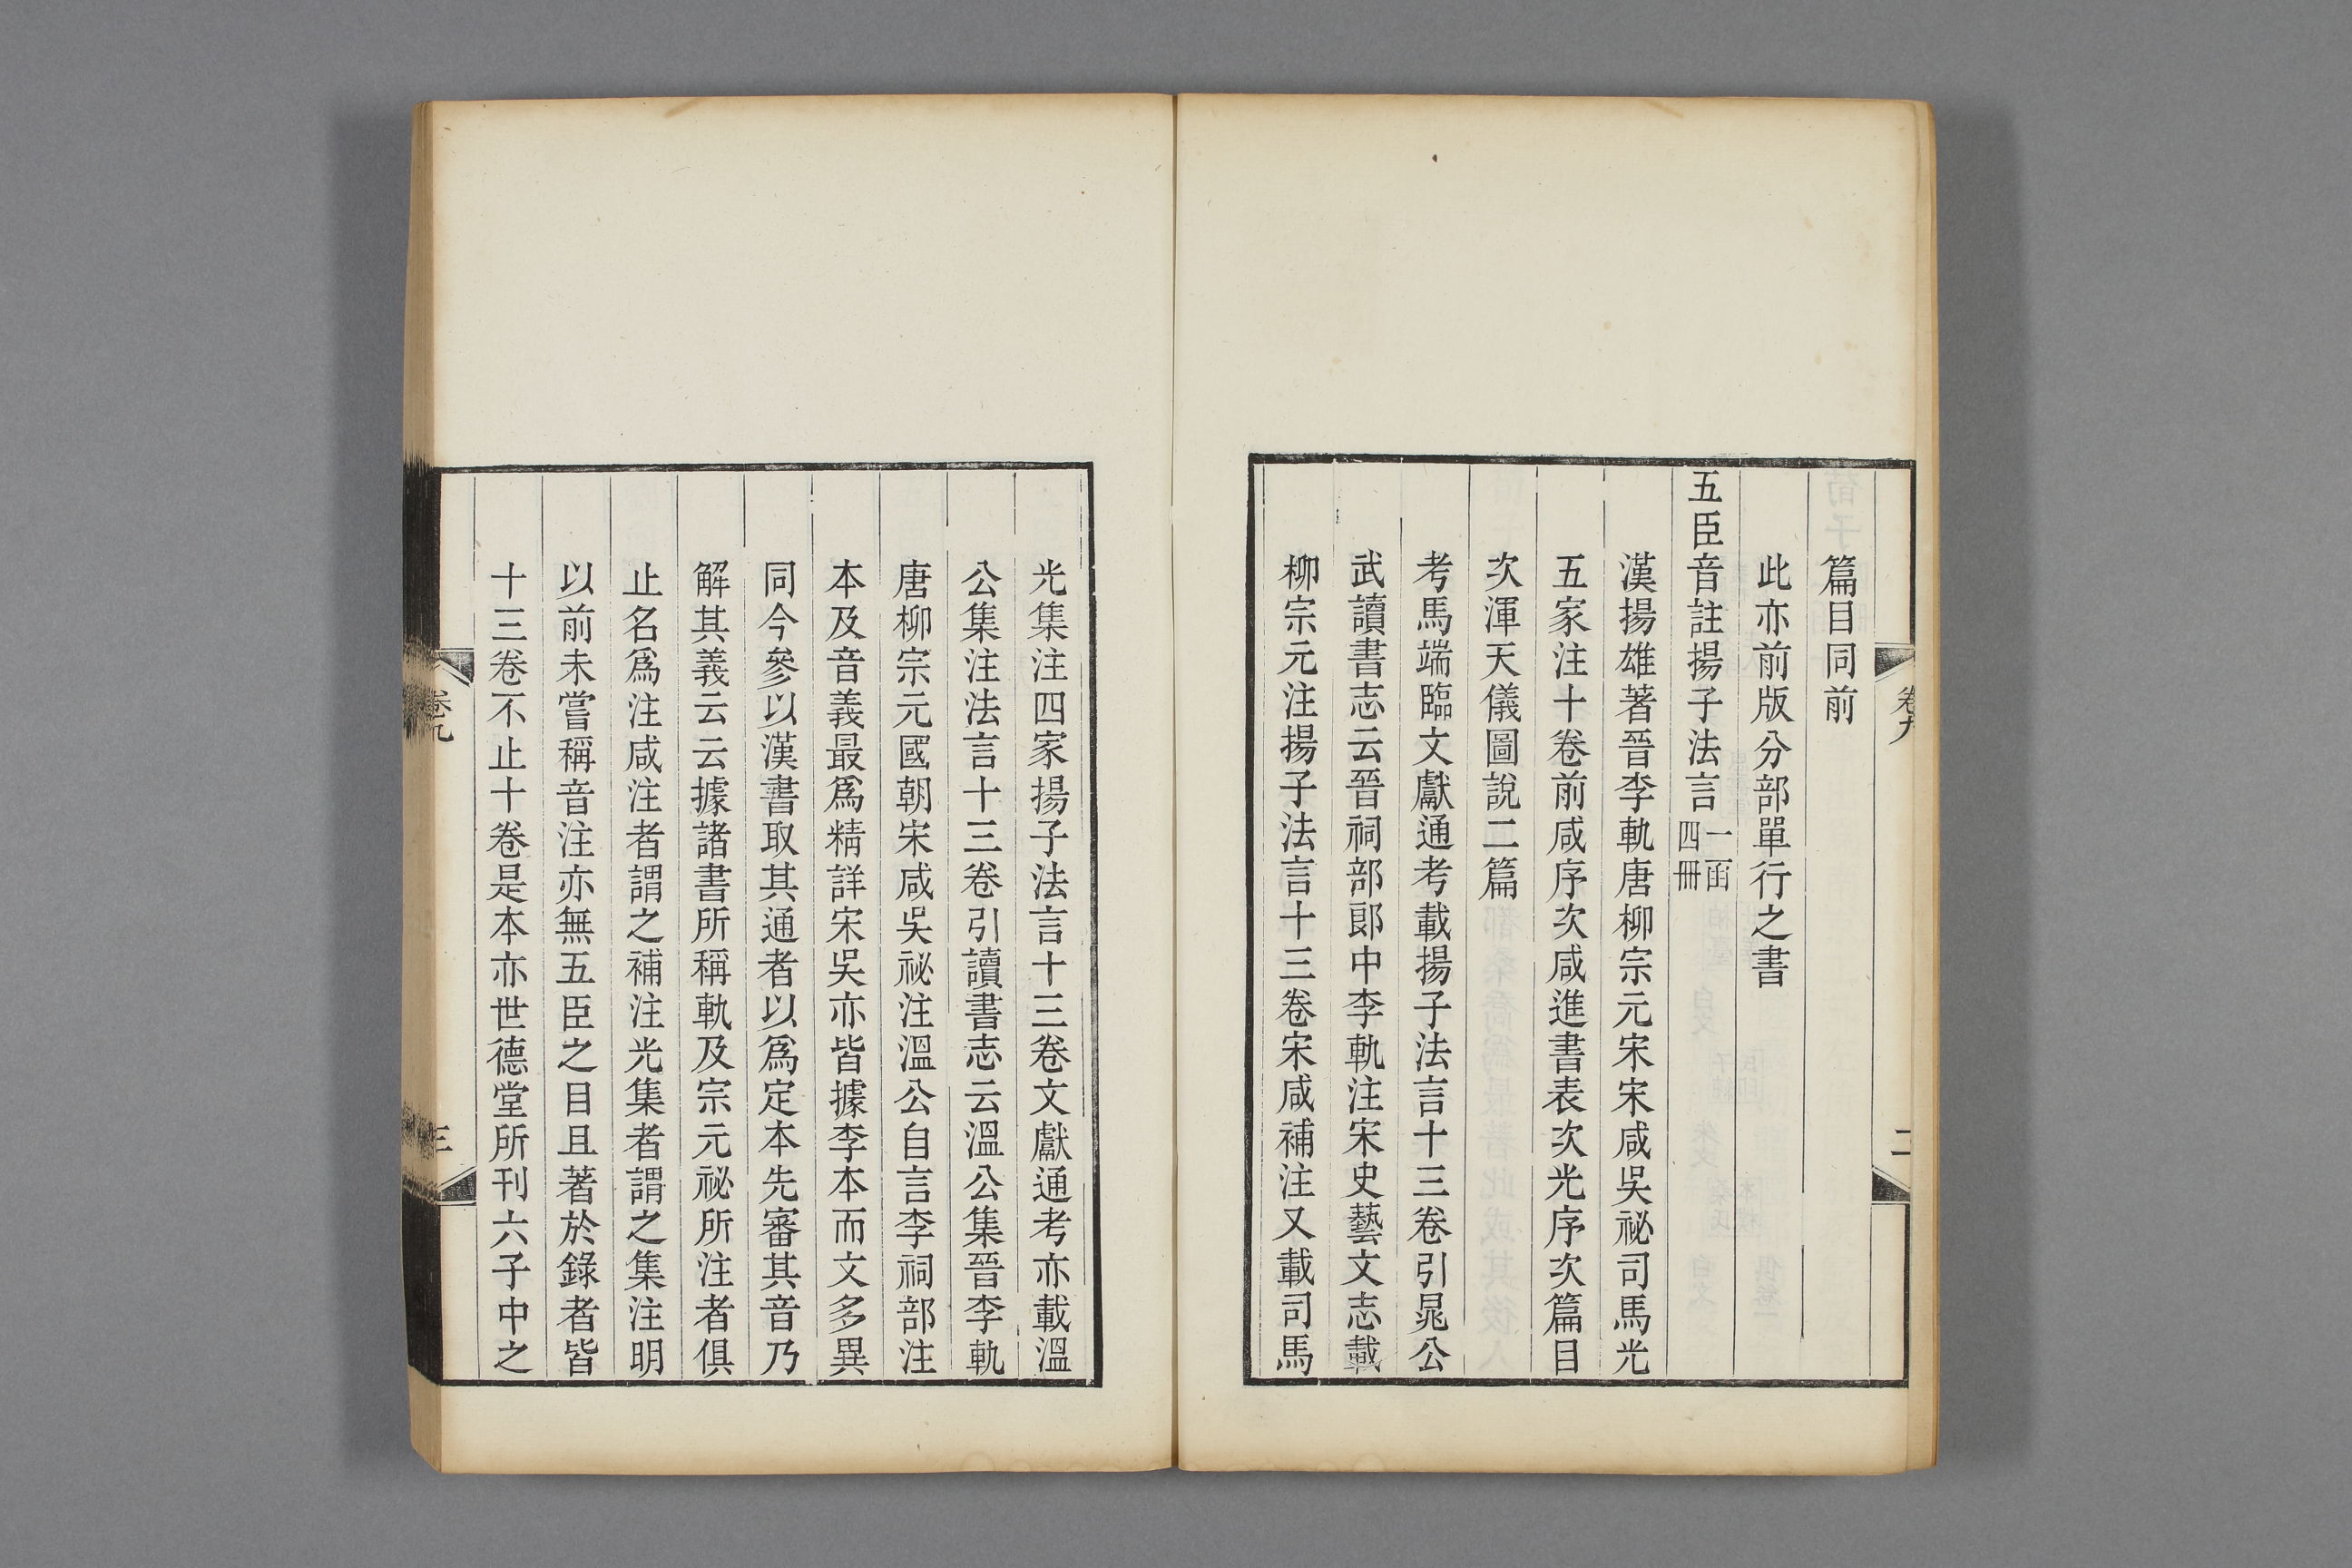 卷九
二
篇目同前
此亦前版分部單行之書
五臣音註揚子法言一函四冊
漢揚雄著晉李軌唐柳宗元宋宋咸吳祕司馬光
五家注十卷前咸序次咸進書表次光序次篇目
次渾天儀圖說二篇
考馬端臨文獻通考載揚子法言十三卷引晁公
武讀書志云晉祠部郎中李軌注宋史藝文志載
柳宗元注揚子法言十三卷宋咸補注又載司馬
光集注四家揚子法言十三卷文獻通考亦載溫
公集注法言十三卷引讀書志云溫公集晉李軌
唐柳宗元國朝宋咸吳祕注溫公自言李祠部注
本及音義最爲精詳宋吳亦皆據李本而文多異
同今參以漢書取其通者以爲定本先審其音乃
解其義云云據諸書所稱軌及宗元祕所注者俱
止名爲注咸注者謂之補注光集者謂之集注明
以前未嘗稱音注亦無五臣之目且著於錄者皆
十三卷不止十卷是本亦世德堂所刊六子中之
卷九
三